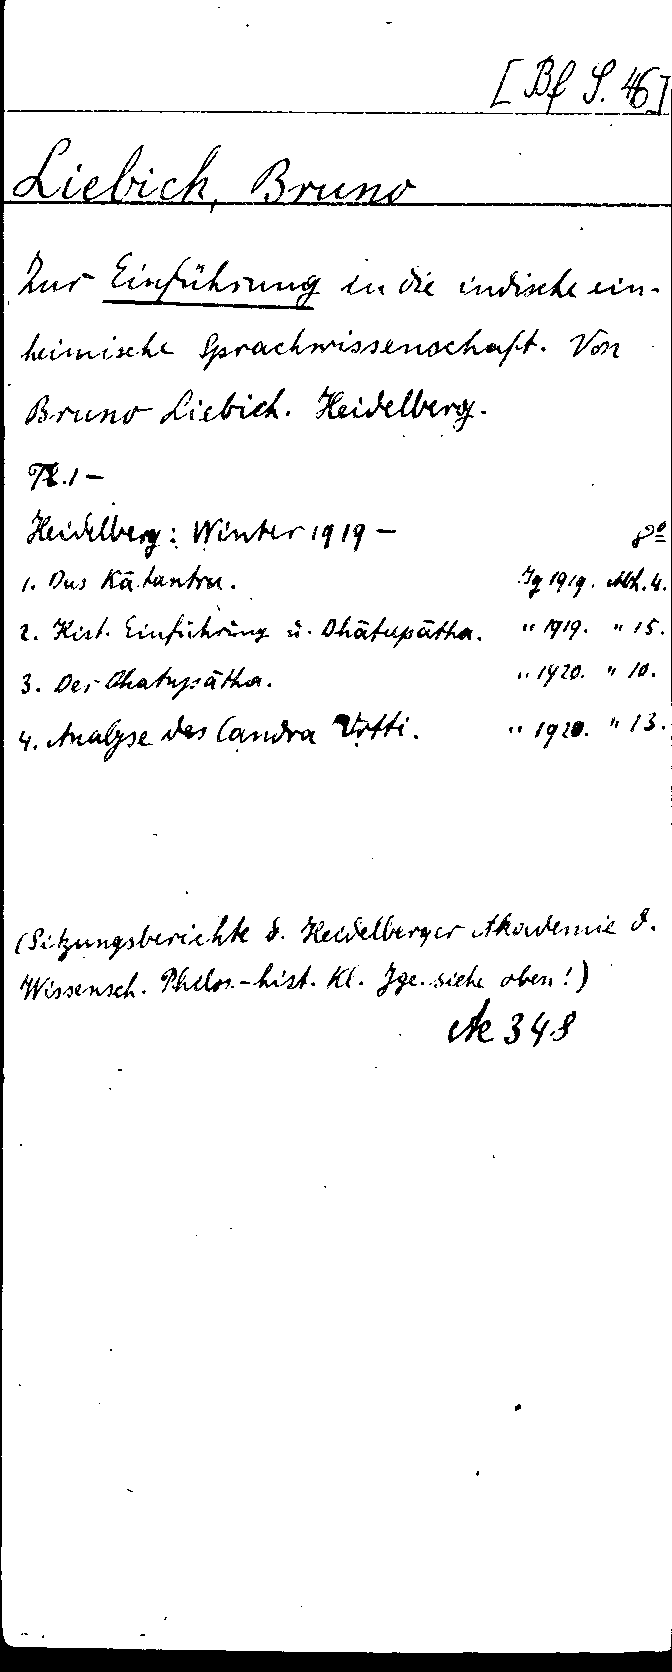 [Bf S. 46]
Liebich, Bruno
Zur Einführung in die indische ein-
heimische Sprachwissenschaft. Von
Bruno Liebich. Heidelberg.
Tl. 1 -
Heidelberg: Winter 1919 - 8º
1. Das Kātantra. Jg 1919. Abh. 4.
2. Hist. Einführung ü. Dhātupātha. " 1919. " 15.
3. Der Dhatupātha. " 1920. " 10.
4. Analyse des Candra Vrtti. " 1920. " 13.
(Sitzungsberichte d. Heidelberger Akademie d.
Wissensch. Philos.-hist. Kl. Jge. siehe oben!)
Ae 348